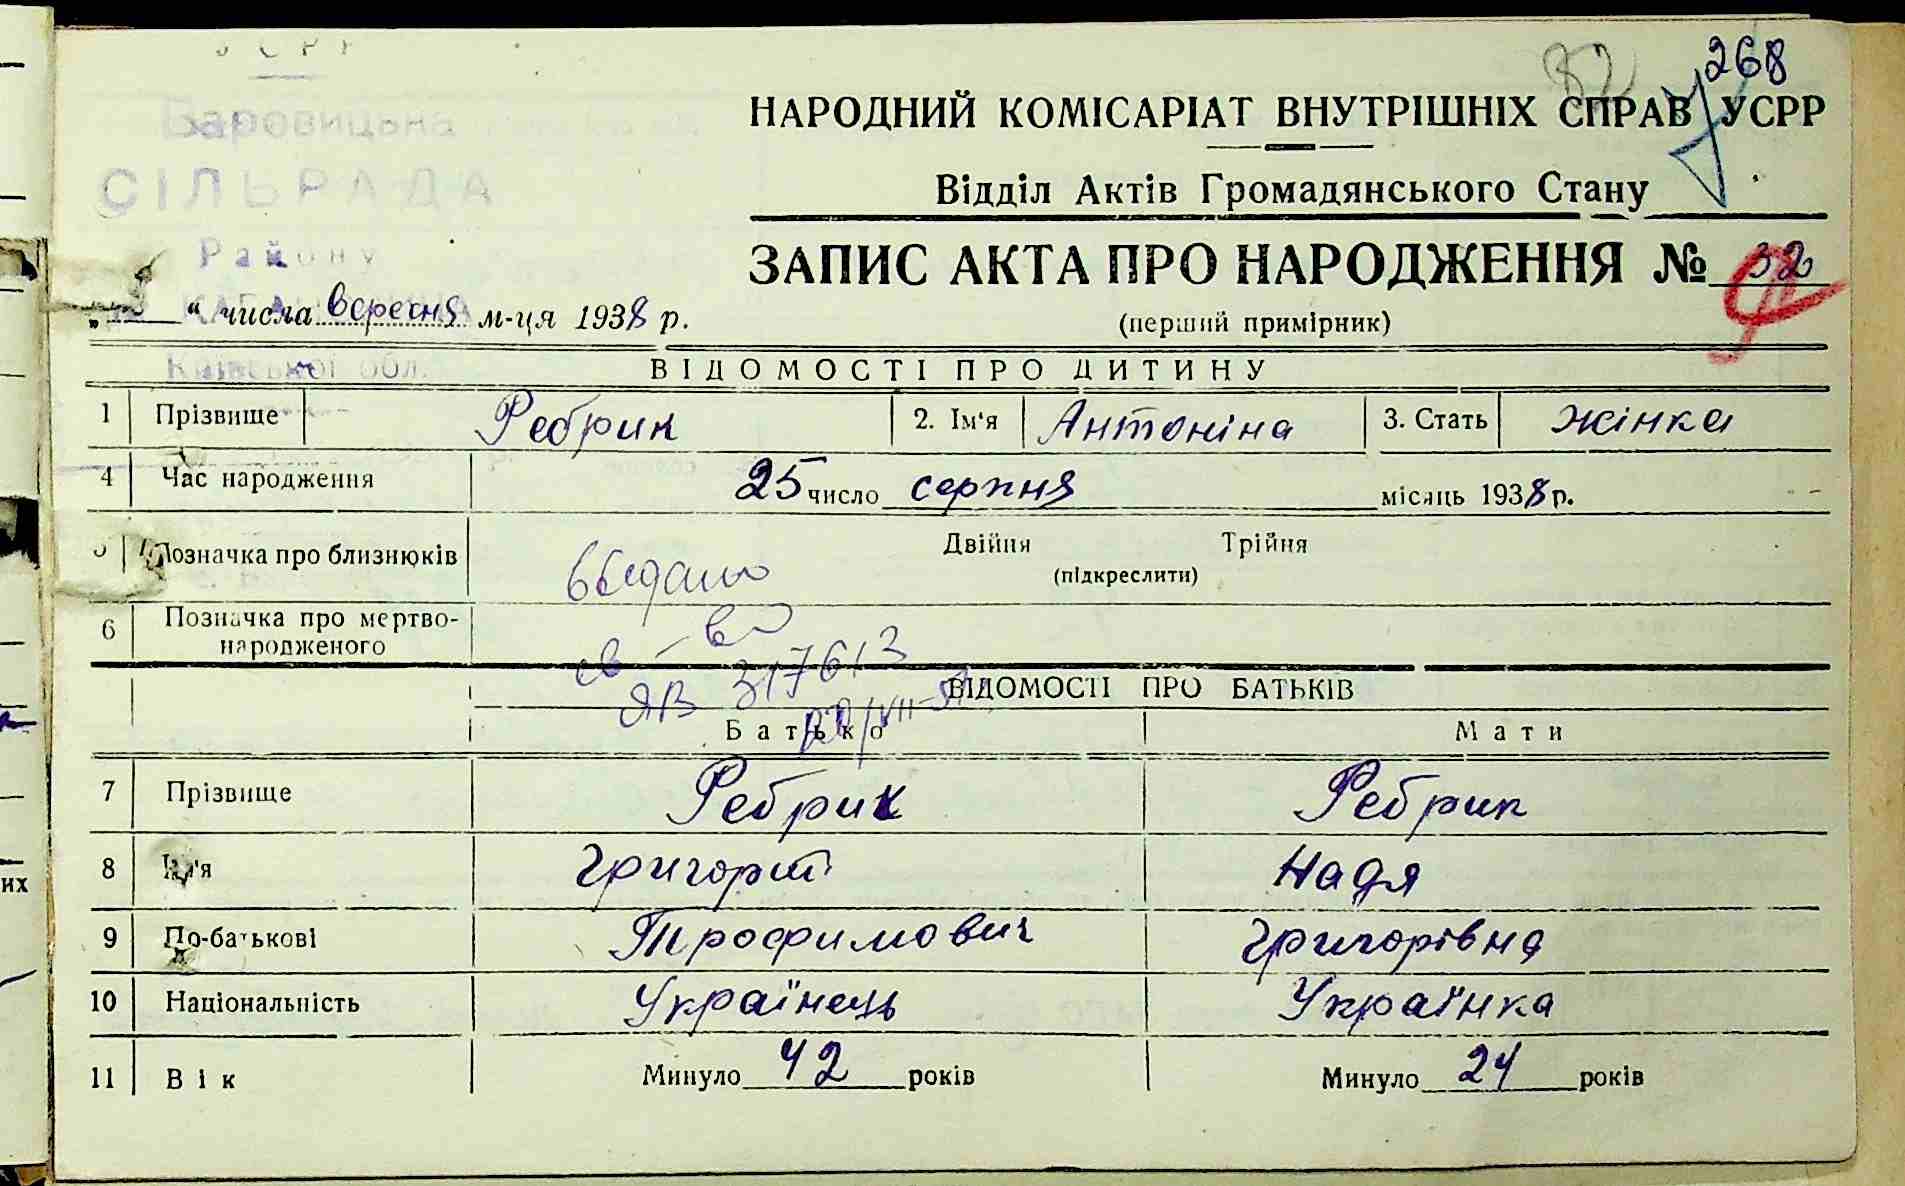 УСРР
Баровицьна
СІЛЬРАДА
Району
Київської обл.
32 268
НАРОДНИЙ КОМІСАРІАТ ВНУТРІШНІХ СПРАВ УСРР
Відділ Актів Громадянського Стану
ЗАПИС АКТА ПРО НАРОДЖЕННЯ № 32
(перший примірник)
„ “ числа вересня м-ця 1938 р.
ВІДОМОСТІ ПРО ДИТИНУ
1 Прізвище Ребрик 2. Ім'я Антоніна 3. Стать жінка
4 Час народження 25 число серпня місяць 1938 р.
5 Позначка про близнюків Двійня Трійня
(підкреслити)
6 Позначка про мертво-
народженого
выдано
св-во
ЯВ 317613
ВІДОМОСТІ ПРО БАТЬКІВ
Батько Мати
7 Прізвище Ребрик Ребрик
8 Ім'я Григорій Надя
9 По-батькові Трофимович Григорівна
10 Національність Українець Українка
11 Вік Минуло 42 років Минуло 24 років
их